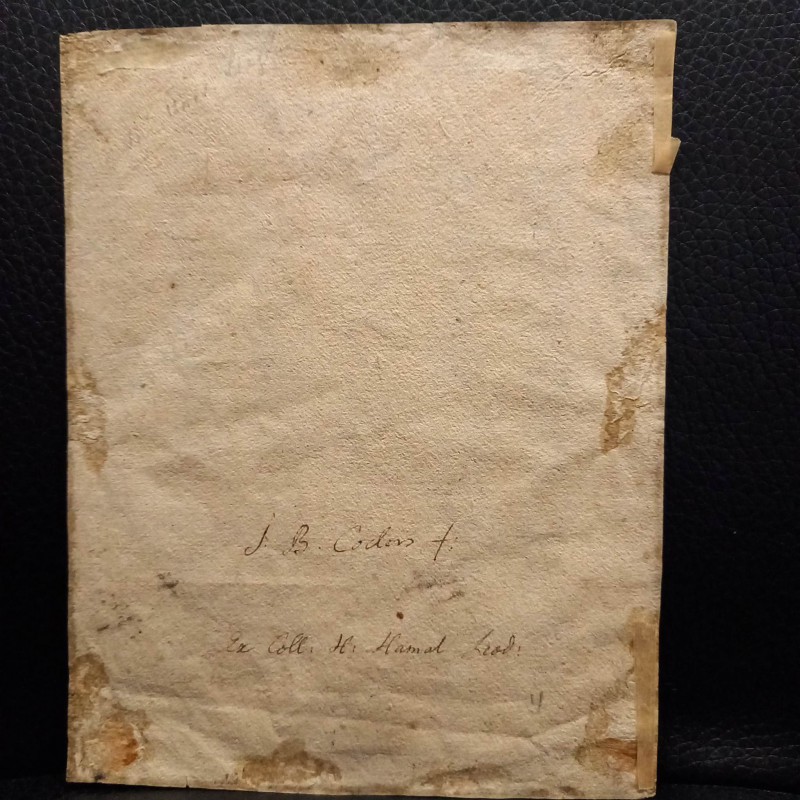 J. B. Coclers f:
Ex Coll: H: Hamal Leod:
4